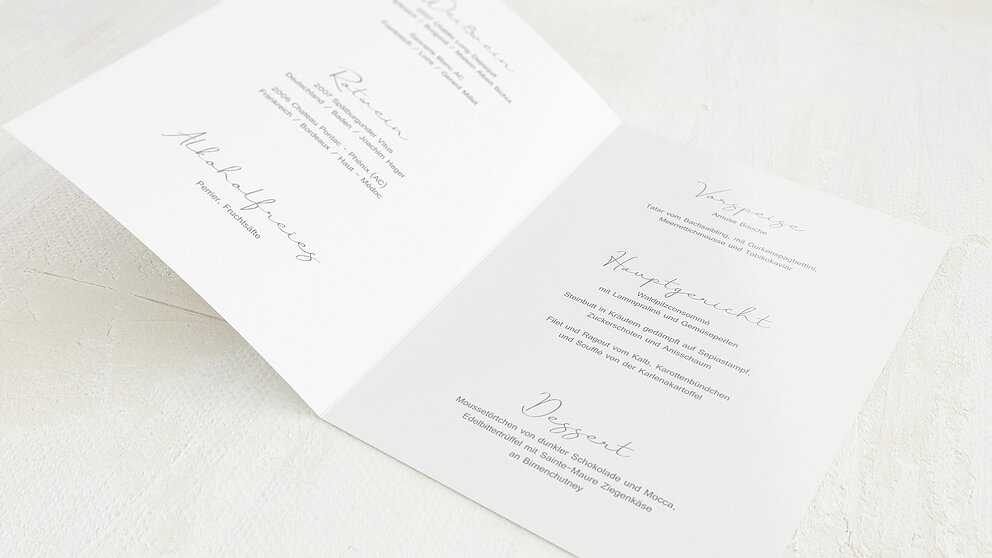 Weißwein
2007 Chablis Long-Depaquit
Burgund / Maison Albert Bichot
Sancerre Blanc AC
Frankreich / Loire / Gerard Millet
Rotwein
2007 Spätburgunder Vitus
Deutschland / Baden / Joachim Heger
2006 Chateau Pontac - Phénix (AC)
Frankreich / Bordeaux / Haut - Médoc
Alkoholfreies
Perrier, Fruchtsäfte
Vorspeise
Amuse Bouche
Tatar vom Bachsaibling, mit Gurkenspaghettini,
Meerrettichmousse und Tobikokaviar
Hauptgericht
Waldpilzconsommé
mit Lammpraliné und Gemüseperlen
Steinbutt in Kräutern gedämpft auf Sepiastampf,
Zuckerschoten und Anisschaum
Filet und Ragout vom Kalb, Karottenbündchen
und Soufflé von der Karlenakartoffel
Dessert
Moussetörtchen von dunkler Schokolade und Mocca,
Edelbittertrüffel mit Sainte-Maure Ziegenkäse
an Birnenchutney